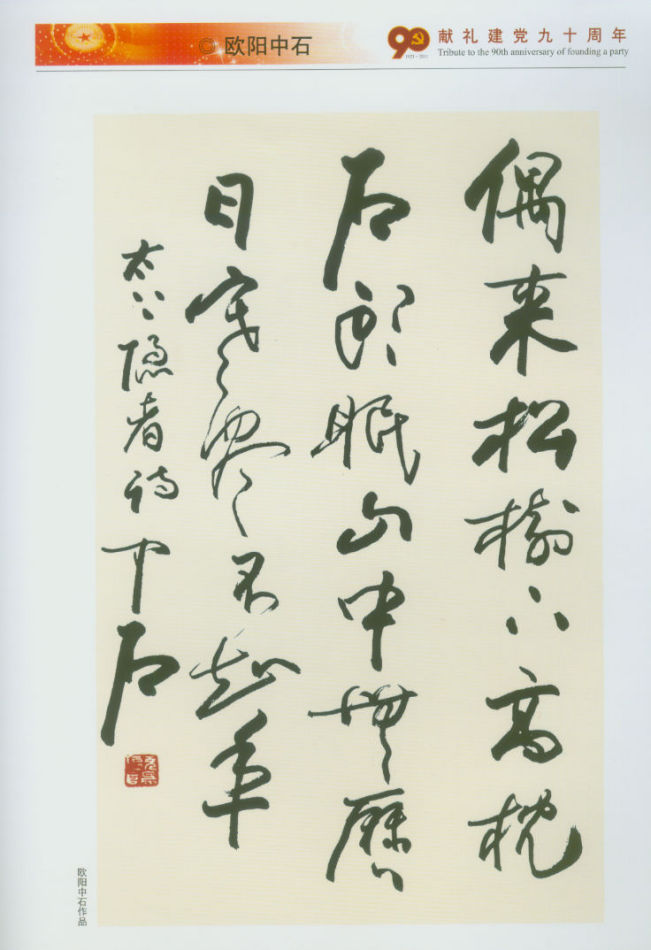 欧阳中石
90
1921-2011
献礼建党九十周年
Tribute to the 90th anniversary of founding a party
偶来松樹下高枕
石頭眠山中無曆
日寒盡不知年
太上隱者詩 中石
欧阳中石作品